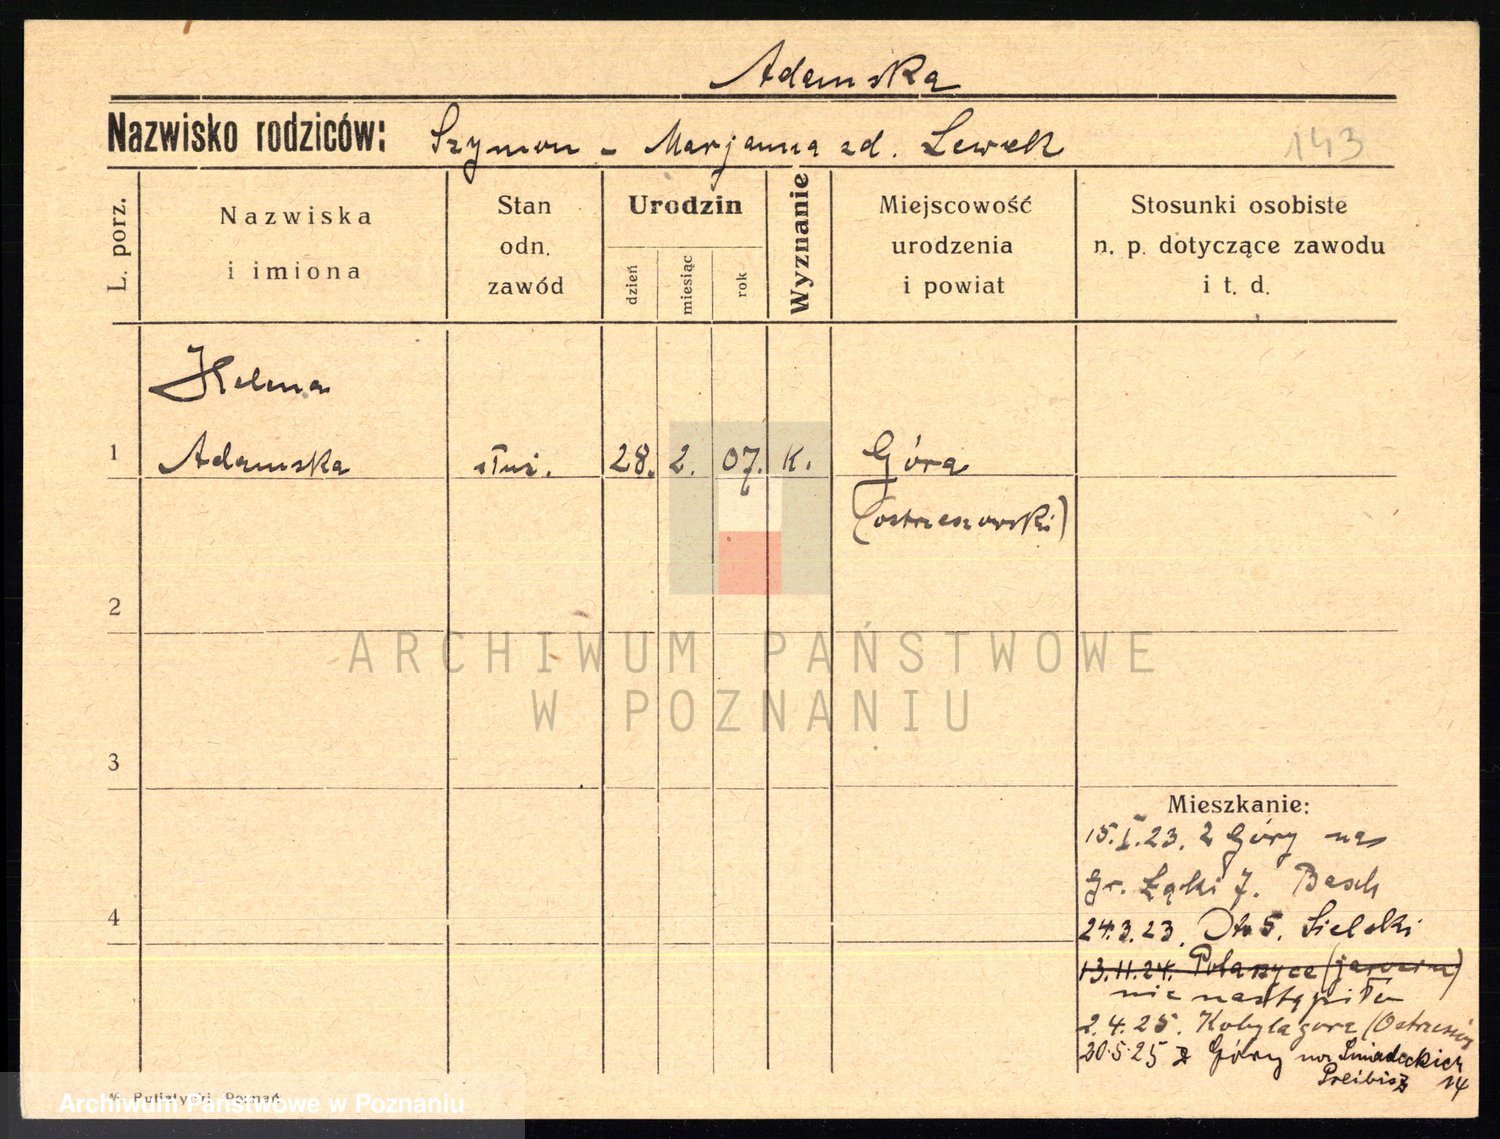 Adamska
Nazwisko rodziców: Szymon - Marjanna zd. Lewek 143
L. porz.
Nazwiska
i imiona
Stan
odn.
zawód
Urodzin
dzień
miesiąc
rok
Wyznanie
Miejscowość
urodzenia
i powiat
Stosunki osobiste
n. p. dotyczące zawodu
i t. d.
Helena
1 Adamska służ. 28. 2. 07. K. Góra
(ostrzeszowski)
2
ARCHIWUM PAŃSTWOWE
W POZNANIU
3
Mieszkanie:
15.I.23. z Góry na
Gr. Łąki 7. Basch
4
24.3.23. 5. Sielski
13.11.24.
nie nastąpiło
2.4.25. Kobylagora
20.5.25 z Góry na Śniadeckich
Preibisz 14
Pulistycki, Poznań
Archiwum Państwowe w Poznaniu